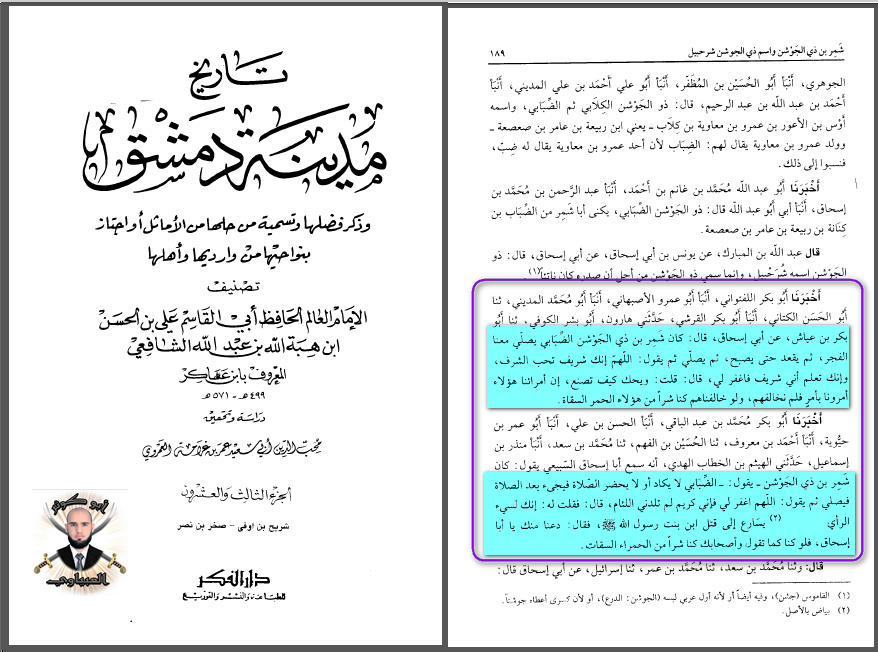 تاريخ
مدينة دمشق
وذكر فضلها وتسمية من حلها من الأماثل أو اجتاز
بنواحيها من وارديها وأهلها
تصنيف
الإمام العالم الحافظ أبي القاسم علي بن الحسن
ابن هبة الله بن عبد الله الشافعي
المعروف بابن عساكر
٤٩٩ هـ - ٥٧١ هـ
دراسة وتحقيق
محب الدين أبي سعيد عمر بن غرامة العمروي
الجزء الثالث والعشرون
شريح بن اوفى - صخر بن نصر
دار الفكر
للطباعة والنشر والتوزيع
العبياوي
شَمِر بن ذي الجَوْشن واسم ذي الجوشن شرحبيل
١٨٩
الجوهري، أَنْبَأ أَبُو الحُسَيْن بن المُظَفّر، أَنْبَأ أَبُو علي أَحْمَد بن علي المديني، أَنْبَأ
أَحْمَد بن عبد اللّه بن عبد الرحيم، قال: ذو الجَوْشن الكِلَابي ثم الضّبَابي، واسمه
أَوْس بن الأعور بن عمرو بن معاوية بن كِلَاب ـ يعني ابن ربيعة بن عامر بن صعصعة ـ
وولد عمرو بن معاوية يقال لهم: الضِبَاب لأن أحد عمرو بن معاوية يقال له ضِبّ،
فنسبوا إلى ذلك.
أَخْبَرَنَا أَبُو عبد اللّه مُحَمَّد بن غانم بن أَحْمَد، أَنْبَأ عبد الرَّحمن بن مُحَمَّد بن
إسحاق، أَنْبَأ أبي أَبُو عبد اللّه قال: ذو الجَوْشن الضِّبَابي، يكنى أبا شَمِر من الضّبَاب بن
كِنَانة بن ربيعة بن عامر بن صعصعة.
قال عبد اللّه بن المبارك، عن يونس بن أبي إسحاق، عن أبي إسحاق، قال: ذو
الجَوْشن اسمه شُرَحْبيل، وإنما سمي ذو الجَوْشن من أجل أن صدره كان ناتئاً(١).
أَخْبَرَنَا أَبُو بكر اللفتواني، أَنْبَأ أَبُو عمرو الأصبهاني، أَنْبَأ أَبُو مُحَمَّد المديني، ثنا
أَبُو الحَسَن الكتاني، أَنْبَأ أَبُو بكر القرشي، حَدَّثَني هارون، أَبُو بشر الكوفي، ثنا أَبُو
بكر بن عياش، عن أبي إسحاق، قال: كان شَمِر بن ذي الجَوْشن الضّبَابي يصلّي معنا
الفجر، ثم يقعد حتى يصبح، ثم يصلّي ثم يقول: اللّهمّ إنك شريف تحب الشرف،
وإنك تعلم أني شريف فاغفر لي، قال: قلت: ويحك كيف تصنع، إن أمرائنا هؤلاء
أمرونا بأمرٍ فلم نخالفهم، ولو خالفناهم كنا شراً من هؤلاء الحمر السقاة.
أَخْبَرَنَا أَبُو بكر مُحَمَّد بن عبد الباقي، أَنْبَأ الحسن بن علي، أَنْبَأ أَبُو عمر بن
حيُّوية، أَنْبَأ أَحْمَد بن معروف، ثنا الحُسَيْن بن الفهم، ثنا مُحَمَّد بن سعد، أَنْبَأ منذر بن
إسماعيل، حَدَّثَني الهيثم بن الخطاب الهدي، أنه سمع أبا إسحاق السّبيعي يقول: كان
شَمِر بن ذي الجَوْشن ـ يقول: ـ الضّبَابي لا يكاد أو لا يحضر الصّلاة فيجيء بعد الصلاة
فيصلي ثم يقول: اللّهم اغفر لي فإني كريم لم تلدني اللئام، قال: فقلت له: إنك لسيء
الرأي (٢) يسَارع إلى قتل ابن بنت رسول اللّه ﷺ، فقال: دعنا منك يا أبا
إسحاق، فلو كنا كما تقول وأصحابك كنا شراً من الحمراء السقات.
قال: وثنا مُحَمَّد بن سعد، ثنا مُحَمَّد بن عمر، ثنا إسرائيل، عن أبي إسحاق قال:
(١) القاموس (جشن)، وفيه أيضاً أو لأنه أول عربي لبسه (الجوشن: الدرع)، أو لأن كسرى أعطاه جوشناً.
(٢) بياض بالأصل.